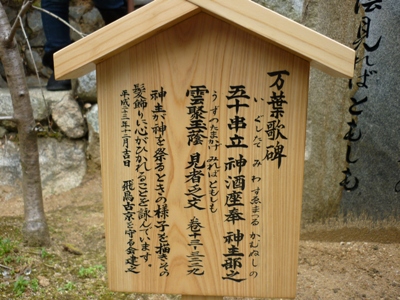 万葉歌碑
五十串立 神酒座奉 神主部之
いぐしたて みわすゑまつる かむぬしの
雲聚玉蔭 見者乏文 巻十三-三二二九
うずのたまかげ みればともしも
神主が神を祭るときの様子を描きその
髪飾りに心がひかれることを詠んでいます。
平成二十三年十二月吉日 飛鳥古京を守る会建之
陰見ればともしも